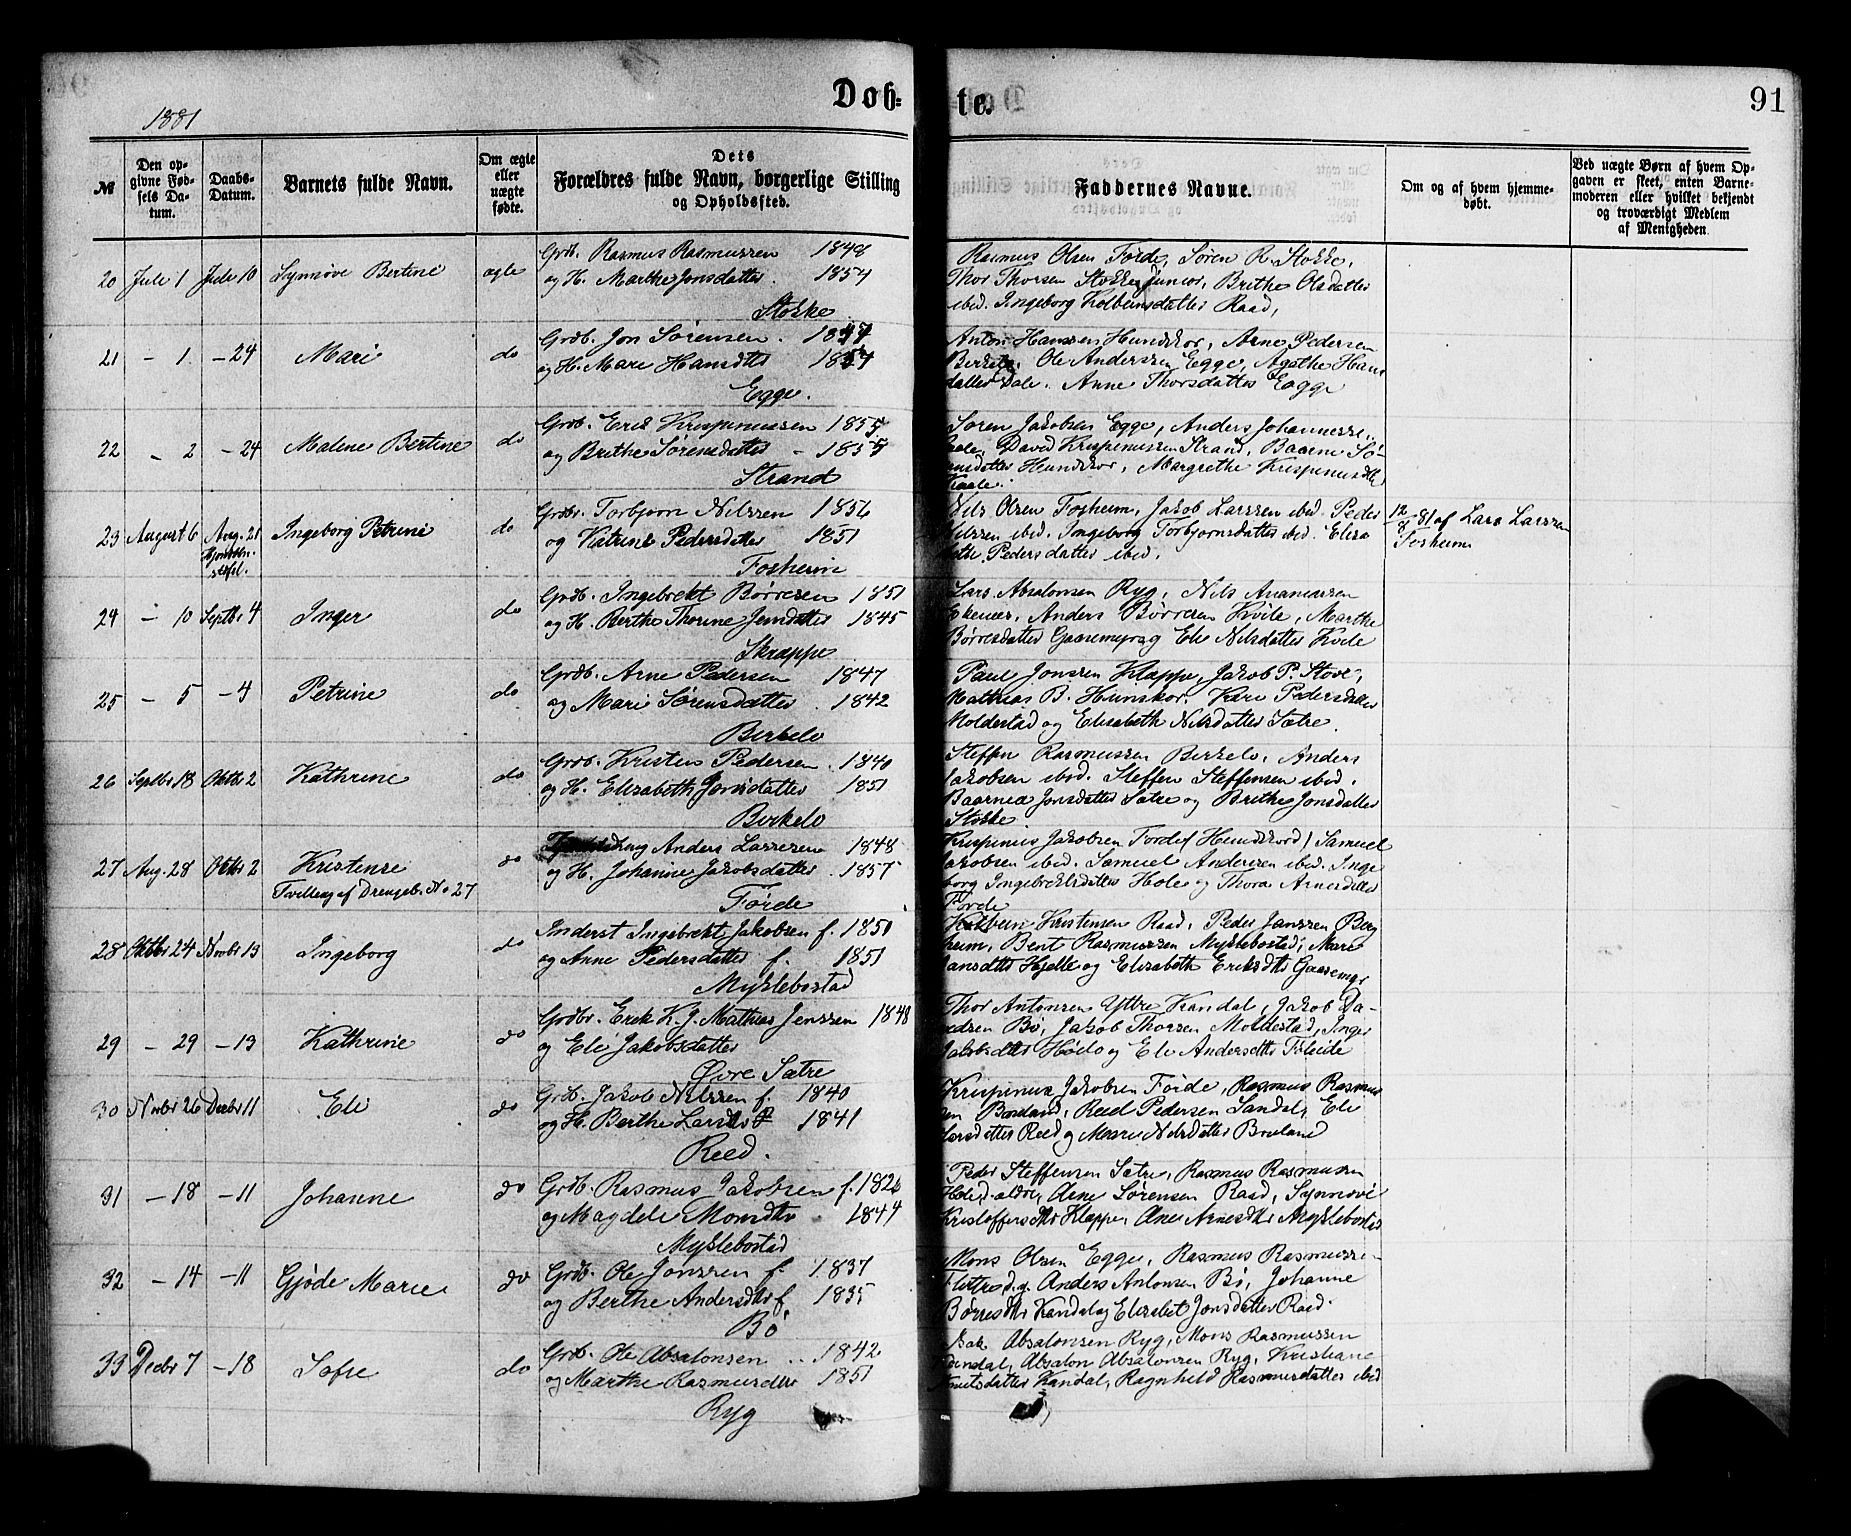 Døb-
te.
91
1881
№
Den op-
givne Fød-
sels Da-
tum.
Daabs-
Datum.
Barnets fulde Navn.
Om ægte
eller
uægte
fødte.
Dets
Forældres fulde Navn, borgerlige Stilling
og Opholdssted.
Faddernes Navne.
Om og af hvem hjemme-
døbt.
Ved uægte Børn af hvem Op-
gaven er skeet, enten Barne-
moderen eller hvilket bekjendt
og troværdigt Medlem
af Menigheden.
20 Juli 1 Juli 10 Synnøve Bertine ægte
Grdb. Rasmus Rasmussen 1848
og H. Marthe Jonsdatter 1854
Stokke
Rasmus Olsen Førde, Søren R. Stokke,
Thor Thorsen Stokke junior, Brithe Olsdatter
ibid. Ingeborg Kolbeinsdatter Raad,
21 - 1. - 24 Mari do
Grdb. Jon Sørensen. 1847
og H. Mari Hansdtr 1854
Egge.
Anton Hanssen Hundskor, Arne Pedersen
Berkelo, Ole Anderssen Egge, Agathe Hans
datter Dale. Anne Thorsdatter Egge
22 - 2 - 24 Malene Bertine do
Grdb. Erik Krispinussen 1855
og Brithe Sørensdatter - 1855
Strand
Søren Jakobsen Egge, Anders Johannesse..
David Krispinussen Strand, Baarne Sø-
rensdatter Hundskor, Margrethe Krispinusdtr
23 August 6 Aug. 21 Ingeborg Petrine do
Grdbr. Torbjørn Nilssen 1856
og Katrine Pedersdatter 1851
Fosheim
Nils Olsen Fosheim, Jakob Larssen ibid. Peder
Nilssen ibid. Ingeborg Torbjørnsdatter ibid. Elisa
beth Pedersdatter ibid.
12/8 81 af Lars Larssen
Fosheim
24 - 10 Septbr 4 Inger do
Grdb. Ingebrekt Børresen 1851
og H. Berthe Thorine Jensdatter 1845
Skrappe
Lars Absalonsen Ryg, Nils Ananiassen
Ekenæs, Anders Børresen Kvile, Marthe
Børresdatter Gaasemyr og Eli Nilsdatter Kvile
25 - 5 - 4 Petrine do
Grdb. Arne Pedersen 1847
og Mari Sørensdatter. 1842
Berkelo
Paul Jonsen Klappe, Jakob P. Stove,
Mathias B. Hunskor. Kari Pedersdatter
Moldestad og Elisabeth Nilsdatter Sætre.
26 Septbr 18 Oktbr 2 Kathrine do
Grdb. Kristen Pedersen. 1840
og H. Elisabeth Jonsdatter 1851
Birkelo
Steffen Rasmussen Berkelo, Anders
Jakobsen ibid. Steffen Steffensen ibid.
Baarnea Jonsdatter Sætre og Brithe Jonsdatter
Stokke
27 Aug. 28 Oktbr 2 Kristense do
Tvilling af Drengeb. No 27
Anders Larssen 1848
og H. Johanne Jakobsdatter. 1857
Førde
Krispinus Jakobsen Førde (Hundskord) Samuel
Jakobsen ibid. Samuel Andersen ibid. Inge
borg Ingebrektsdatter Hole og Thora Arnesdatter
Førde
28 Oktbr 24 Novbr 13 Ingeborg do
Inderst Ingebrekt Jakobsen f. 1851
og Anne Pedersdatter f. 1851
Myklebostad
Kolbein Kristensen Raad, Peder Janssen Berg
heim, Bent Rasmussen Myklebostad, Mari
Hansdtr Hjelle og Elisabeth Eriksdtr Gaasemyr
29 - 29 - 13 Kathrine do
Grdbr. Erik K. J. Mathias Jenssen 1848
og Eli Jakobsdatter
Øvre Sætre
Thor Antonsen Yttre Kandal, Jakob Da-
vidsen Bø, Jakob Thorsen Moldestad, Inger
Jakobsdtr og Eli Andersdtr
30 Novbr 26 Decbr 11 Eli do
Grdb. Jakob Nilssen f. 1840
og H. Berthe Larsdtr 1841
Reed.
Krispinus Jakobsen Førde, Rasmus Rasmus
sen Breland, Reed Pedersen Sandal, Eli
Larsdatter Reed og Mari Nilsdatter Breland
31 - 18 - 11 Johanne do
Grdb. Rasmus Jakobsen f. 1826
og Magdeli Monsdtr 1844
Myklebostad
Peder Steffensen Sætre, Rasmus Rasmussen
Hole d. ældre, Arne Sørensen Raad, Synnøve
Kristoffersdtr Klappe, Ane Arnesdtr Myklebostad
32 - 14 - 11 Gjøde Marie do
Grdb. Ole Jonssen f. 1837
og Berthe Andersdtr f. 1835
Bø
Mons Olsen Egge, Rasmus Rasmusse-
d.y. Anders Antonsen Bø, Johanne
Børresdtr Kandal og Elisabet Jonsdatter Raad.
33 Decbr 7 - 18 Sofie do
Grdb. Ole Absalonsen .. 1842
og Marthe Rasmusdtr 1851
Ryg
Isak Absalonsen Ryg, Mons Rasmussen
Absalon Absalonsen Ryg, Kristiane
Knutsdatter Kandal, Ragnhild Rasmusdatter ibid